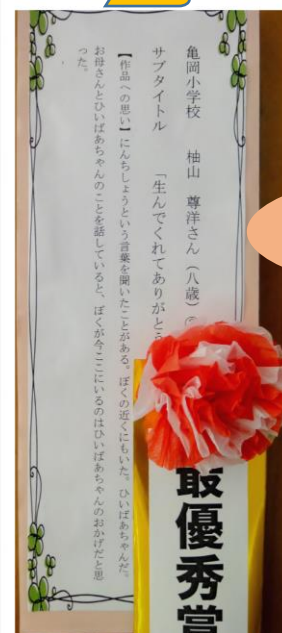 亀岡小学校 柚山 尊洋さん(八歳)の
サブタイトル 「生んでくれてありがとう
【作品への思い】にんちしょうという言葉を聞いたことがある。ぼくの近くにもいた。ひいばあちゃんだ。
お母さんとひいばあちゃんのことを話していると、ぼくが今ここにいるのはひいばあちゃんのおかげだと思
った。
最優秀賞